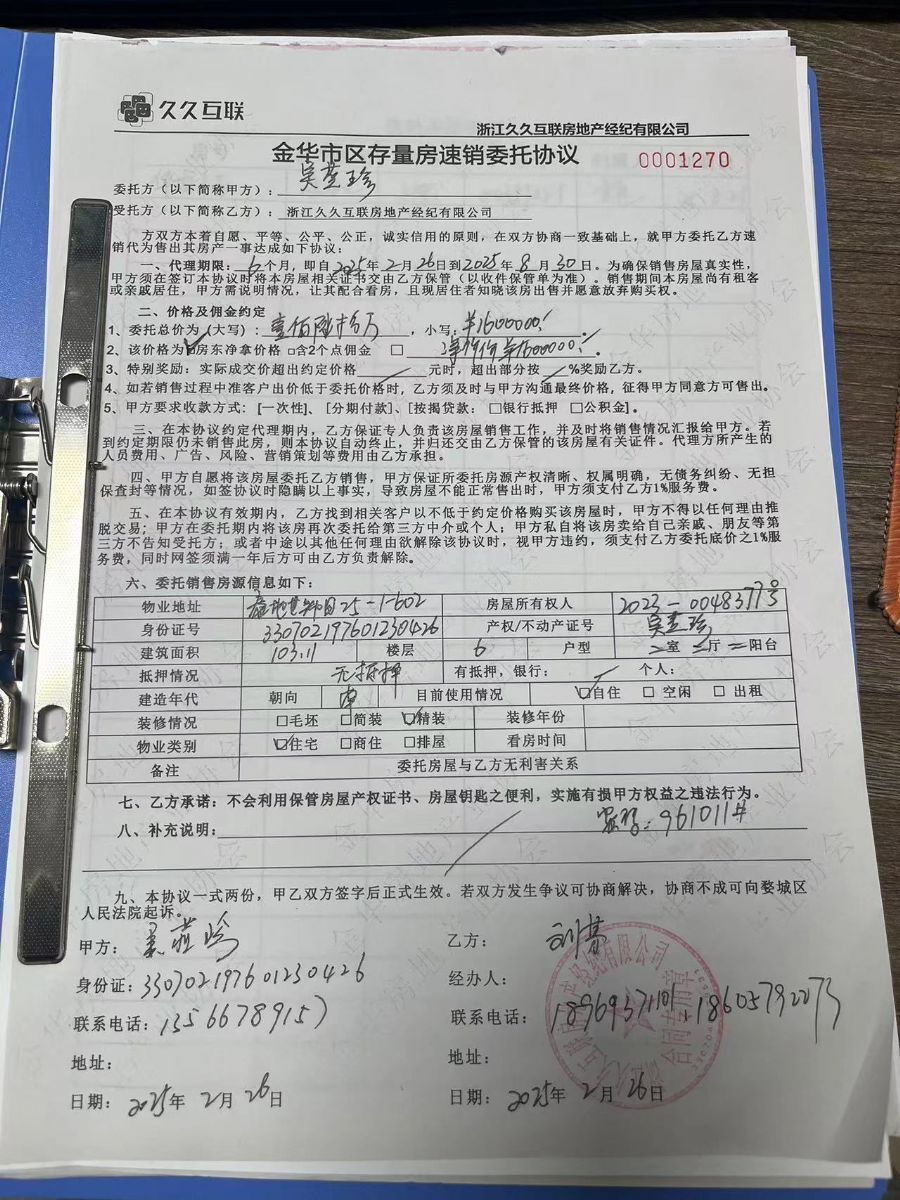 久久互联
浙江久久互联房地产经纪有限公司
金华市区存量房速销委托协议
0001270
委托方（以下简称甲方）：
受托方（以下简称乙方）：浙江久久互联房地产经纪有限公司
方双方本着自愿、平等、公平、公正，诚实信用的原则，在双方协商一致基础上，就甲方委托乙方速
销代为售出其房产一事达成如下协议：
一、代理期限：6个月，即自2025年2月26日到2025年8月30日。为确保销售房屋真实性，
甲方须在签订本协议时将本房屋相关证书交由乙方保管（以收件保管单为准）。销售期向本房屋尚有租客
或亲戚居住，甲方需说明情况，让其配合看房，且现居住者知晓该房出售并愿意放弃购买权。
二、价格及佣金约定
1、委托总价为（大写）：壹佰陆拾万，小写：¥1600000.
2、该价格为☑房东净拿价格 □含2个点佣金 □ ¥1600000.
3、特别奖励：实际成交价超出约定价格 / 元时，超出部分按 / %奖励乙方。
4、如若销售过程中准客户出价低于委托价格时，乙方须及时与甲方沟通最终价格，征得甲方同意方可售出。
5、甲方要求收款方式：[一次性]、[分期付款]、[按揭贷款：□银行抵押 □公积金]。
三、在本协议约定代理期内，乙方保证专人负责该房屋销售工作，并及时将销售情况汇报给甲方。若
到约定期限仍未销售此房，则本协议自动终止，并归还交由乙方保管的该房屋有关证件。代理方所产生的
人员费用、广告、风险、营销策划等费用由乙方承担。
四、甲方自愿将该房屋委托乙方销售，甲方保证所委托房源产权清晰、权属明确，无债务纠纷、无担
保查封等情况，如签协议时隐瞒以上事实，导致房屋不能正常售出时，甲方须支付乙方1%服务费。
五、在本协议有效期内，乙方找到相关客户以不低于约定价格购买该房屋时，甲方不得以任何理由推
脱交易；甲方在委托期内将该房再次委托给第三方中介或个人；甲方私自将该房卖给自己亲戚、朋友等第
三方不告知受托方；或者中途以其他任何理由欲解除该协议时，视甲方违约，须支付乙方委托底价之1%服
务费，同时网签须满一年后方可由乙方负责解除。
六、委托销售房源信息如下：
物业地址 25-1-602 房屋所有权人 2023-0048377号
身份证号 330702197601230426 产权/不动产证号
建筑面积 103.11 楼层 6 户型 二室 二厅 二阳台
抵押情况 无抵押 有抵押，银行： / 个人：
建造年代 朝向 南 目前使用情况 ☑自住 □空闲 □出租
装修情况 □毛坯 □简装 ☑精装 装修年份
物业类别 ☑住宅 □商住 □排屋 看房时间
备注 委托房屋与乙方无利害关系
七、乙方承诺：不会利用保管房屋产权证书、房屋钥匙之便利，实施有损甲方权益之违法行为。
八、补充说明： 密码：961011#
九、本协议一式两份，甲乙双方签字后正式生效。若双方发生争议可协商解决，协商不成可向婺城区
人民法院起诉。
甲方： 乙方：
身份证：330702197601230426 经办人：
联系电话：13566789157 联系电话：18969371101、18605792273
地址： 地址：
日期：2025年2月26日 日期：2025年2月26日
合同专用章